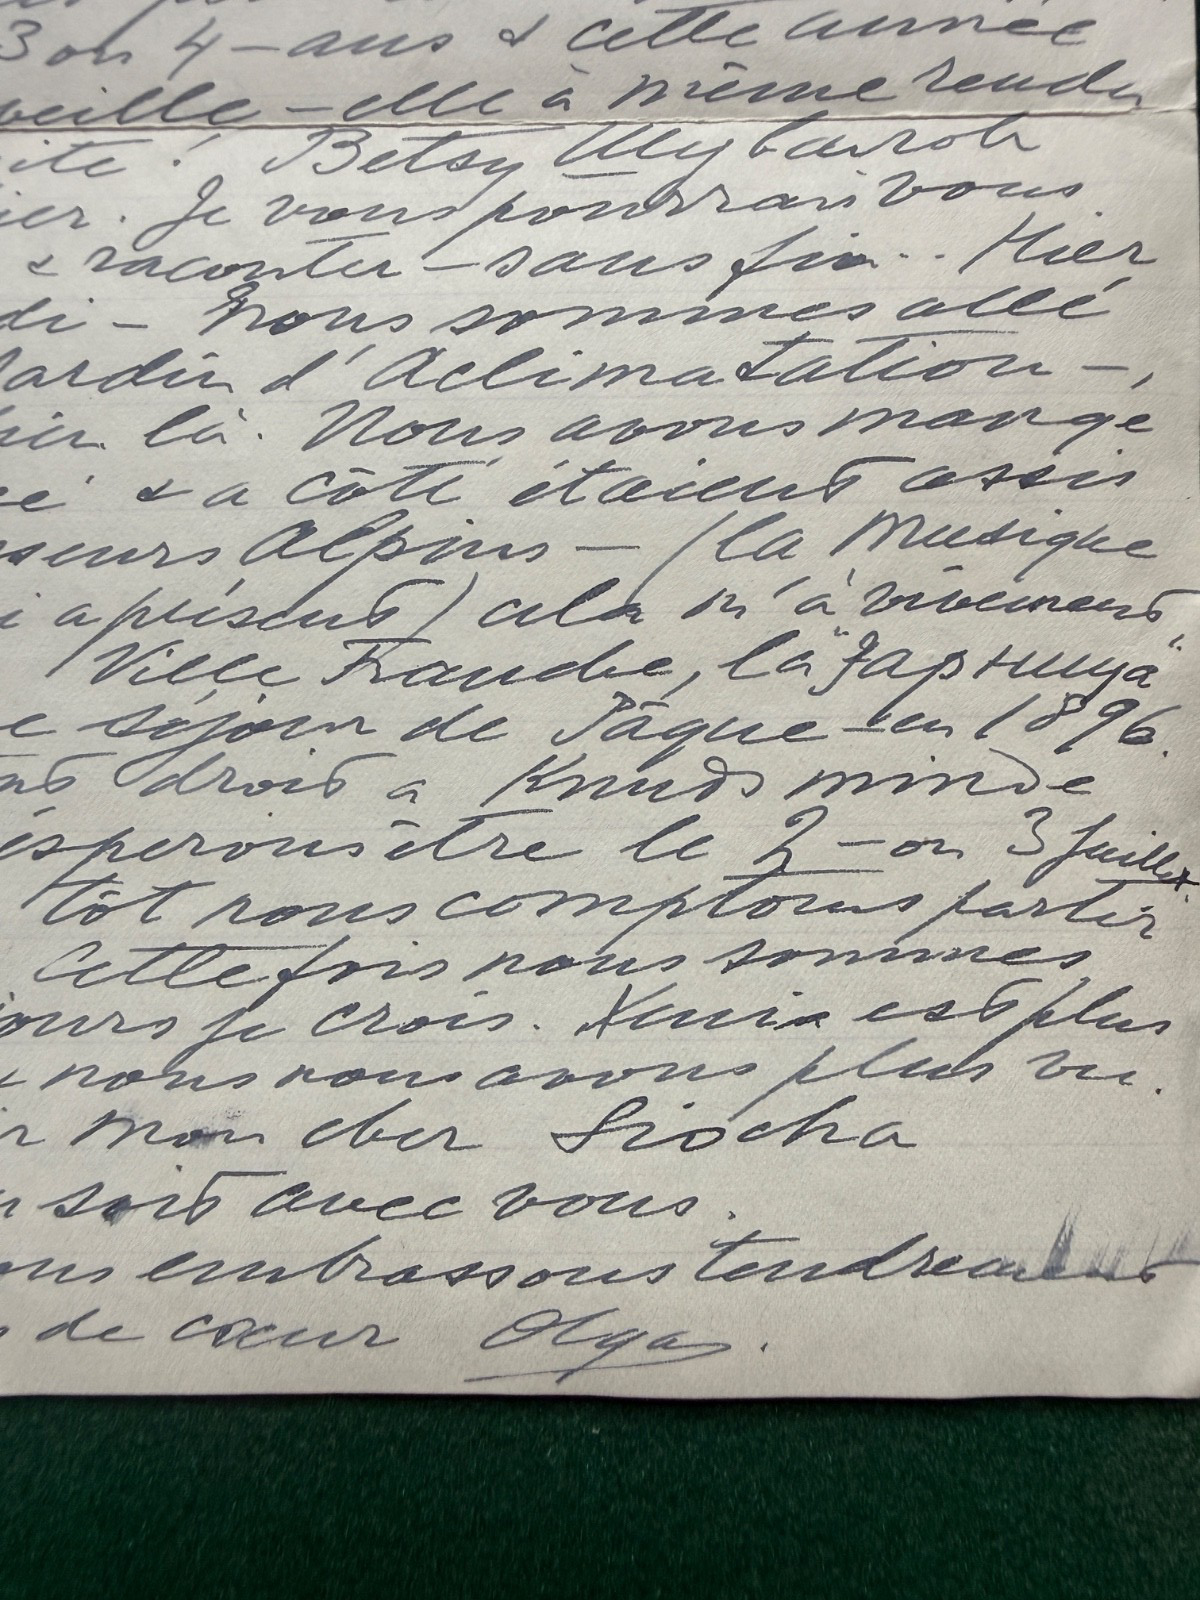 3 ou 4 – ans & cette année
veille – elle à même rendu
ite ! Betsy
ier. Je vous pourrais vous
& raconter – sans fin .. Hier
di – nous sommes allé
Jardin d'Aclimatation –,
là. Nous avons mangé
& a côté étaient assis
sseurs Alpins – (la Musique
i a présent) cela m'à vivement
Ville Franche, la "Зарница"
e séjour de Pâque – en 1896.
droit a Knudsminde
ésperons être le 2 – ou 3 Juillet
tôt nous comptons partir
Cette fois nous sommes
jours je crois. Xenia est plus
& nous nous avons plus vu.
r mon cher Siocha
soit avec vous.
ous embrassons tendrement
de cœur Olga.